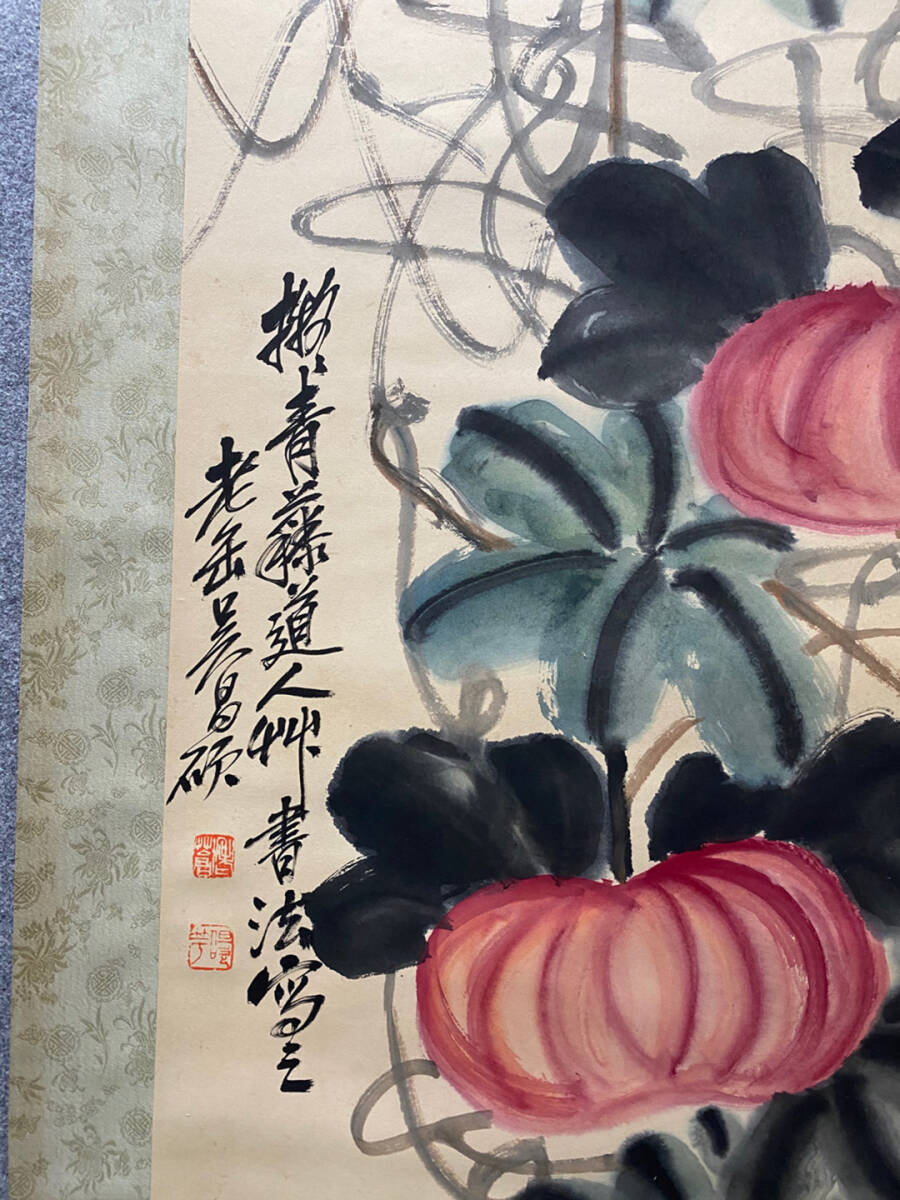 擬青藤道人艸書法寫之
老缶吳昌碩